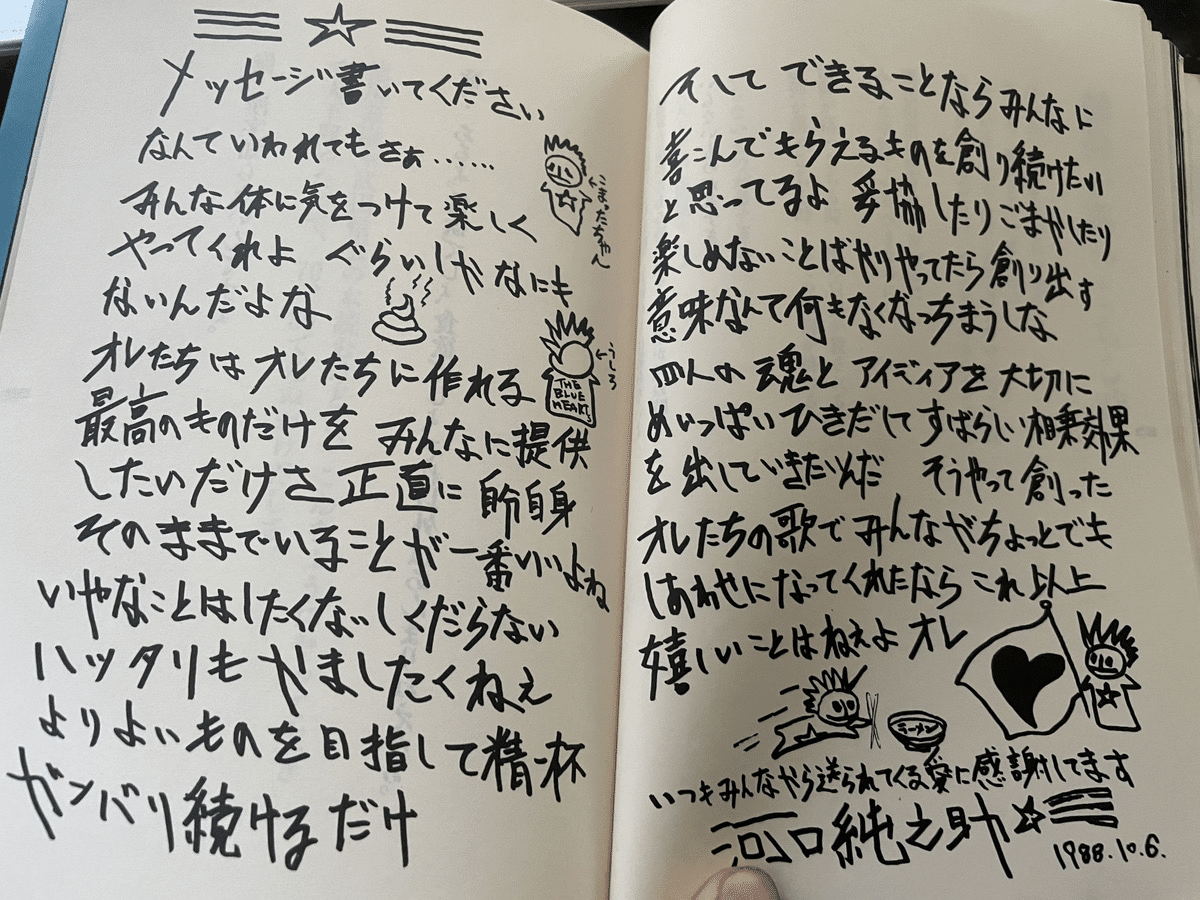 メッセージ書いてください
なんていわれてもさぁ……
みんな体に気をつけて楽しく
やってくれよ ぐらいしかなにも
ないんだよな
オレたちはオレたちに作れる
最高のものだけを みんなに提供
したいだけさ 正直に 自分自身
そのままでいることが一番いいよね
いやなことはしたくないしくだらない
ハッタリもかましたくねぇ
よりよいものを目指して精一杯
ガンバリ続けるだけ
こまったちゃん
うしろ
THE
BLUE
HEARTS
そして できることならみんなに
喜こんでもらえるものを創り続けたい
と思ってるよ 妥協したりごまかしたり
楽しめないことばかりやってたら創り出す
意味なんて何もなくなっちまうしな
四人の魂とアイディアを大切に
めいっぱいひきだしてすばらしい相乗効果
を出していきたいんだ そうやって創った
オレたちの歌でみんながちょっとでも
しあわせになってくれたなら これ以上
嬉しいことはねぇよ オレ
ラーメン
いつもみんなから送られてくる愛に感謝してます
河口純之助
1988.10.6.